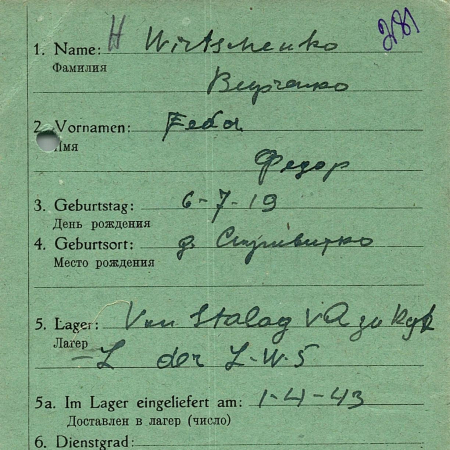 H Wirtschenko 281
1. Name:
Фамилия
Вирченко
2. Vornamen: Fedor
Имя
Федор
3. Geburtstag: 6-7-19
День рождения
4. Geburtsort: д.
Место рождения
5. Lager: Von Stalag VA zu
Лагер
der L-W-5
5a. Im Lager eingeliefert am: 1-4-43
Доставлен в лагер (число)
6. Dienstgrad: